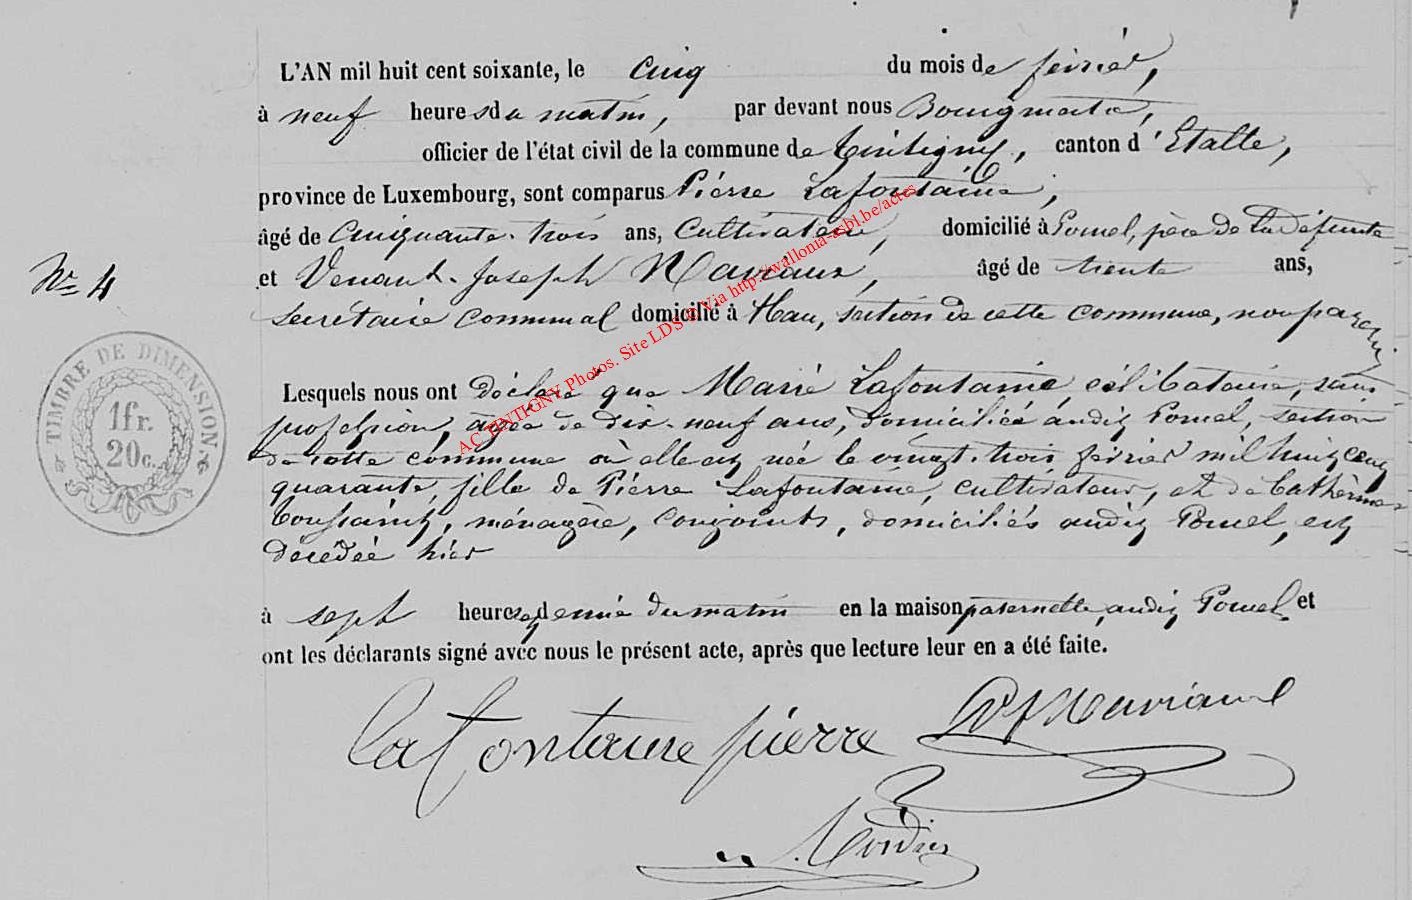 L'AN mil huit cent soixante, le cinq du mois de février,
à neuf heures du matin, par devant nous Bourgmestre,
officier de l'état civil de la commune de Tintigny, canton d'Etalle,
province de Luxembourg, sont comparus Pierre Lafontaine,
âgé de Cinquante-trois ans, Cultivateur, domicilié à Poncel, père de la défunte
N° 4
et Venant-Joseph Maviaux, âgé de trente ans,
Secrétaire communal domicilié à Han, section de cette commune, non parent
Lesquels nous ont déclaré que Marie Lafontaine, célibataire, sans
profession, âgée de dix-neuf ans, domiciliée audit Poncel, section
de cette commune où elle est née le vingt-trois février mil huit cent
quarante, fille de Pierre Lafontaine, cultivateur, et de Cathérine
Toussaint, ménagère, conjoints, domiciliés audit Poncel, est
décédée hier
à sept heures et demie du matin en la maison paternelle, audit Poncel, et
ont les déclarants signé avec nous le présent acte, après que lecture leur en a été faite.
Lafontaine pierre
TIMBRE DE DIMENSION
1 fr.
20 c.
AC TINTIGNY Photos. Site LDS © Via http://wallonia-asbl.be/actes